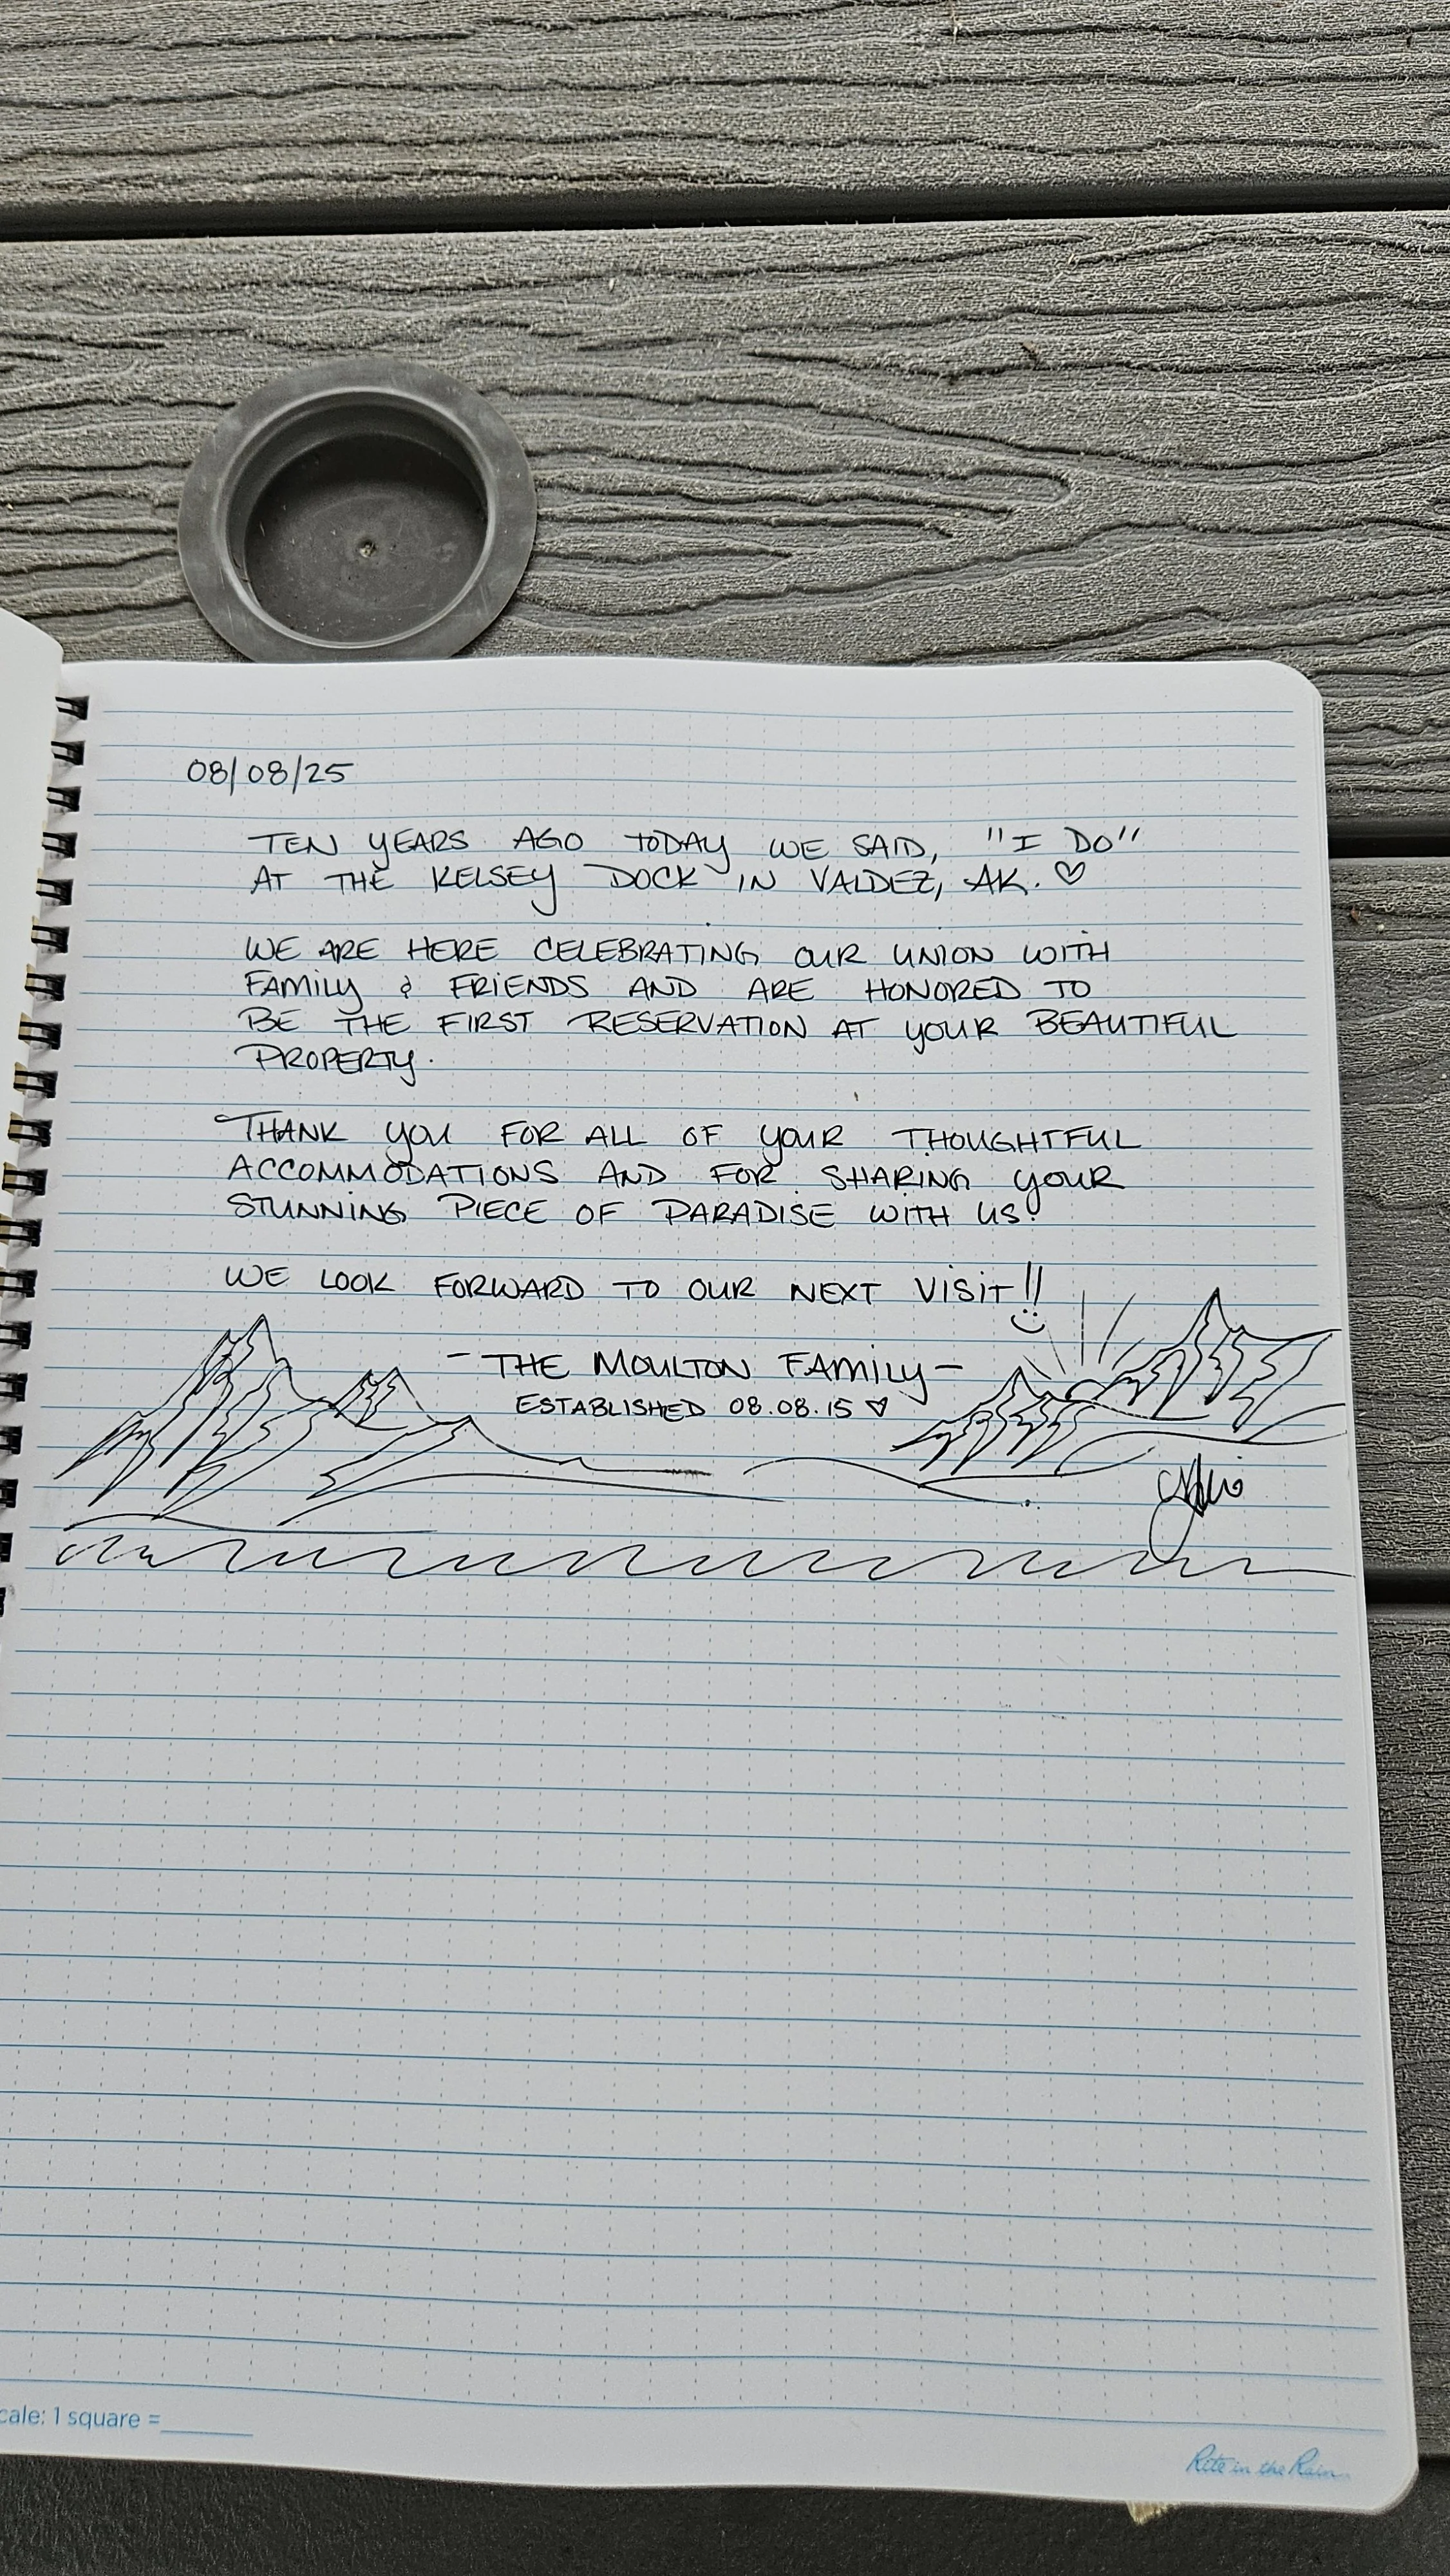 08/08/25
TEN YEARS AGO TODAY WE SAID, "I DO"
AT THE KELSEY DOCK IN VALDEZ, AK. ♡
WE ARE HERE CELEBRATING OUR UNION WITH
FAMILY & FRIENDS AND ARE HONORED TO
BE THE FIRST RESERVATION AT YOUR BEAUTIFUL
PROPERTY.
THANK YOU FOR ALL OF YOUR THOUGHTFUL
ACCOMMODATIONS AND FOR SHARING YOUR
STUNNING PIECE OF PARADISE WITH US!
WE LOOK FORWARD TO OUR NEXT VISIT!!
- THE MOULTON FAMILY -
ESTABLISHED 08.08.15 ♡
cale: 1 square =
Rite in the Rain